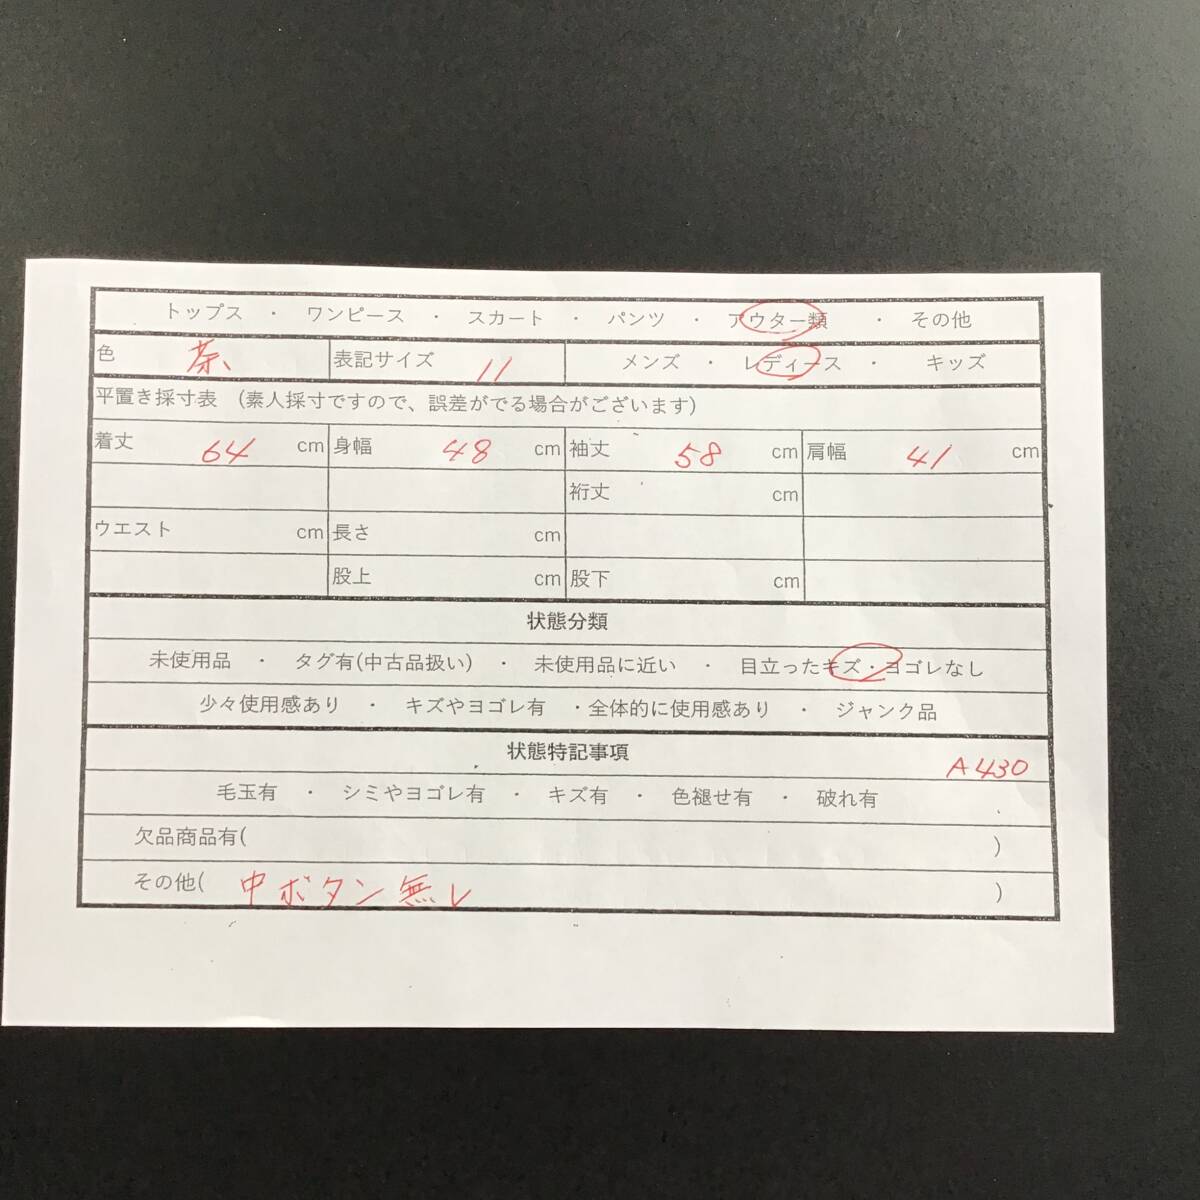 トップス ・ ワンピース ・ スカート ・ パンツ ・ アウター類 ・ その他
色 茶、 表記サイズ 11 メンズ ・ レディース ・ キッズ
平置き採寸表 (素人採寸ですので、誤差がでる場合がございます)
着丈 64 cm 身幅 48 cm 袖丈 58 cm 肩幅 41 cm
裄丈 cm
ウエスト cm 長さ cm
股上 cm 股下 cm
状態分類
未使用品 ・ タグ有(中古品扱い) ・ 未使用品に近い ・ 目立ったキズ・ヨゴレなし
少々使用感あり ・ キズやヨゴレ有 ・全体的に使用感あり ・ ジャンク品
状態特記事項 A430
毛玉有 ・ シミやヨゴレ有 ・ キズ有 ・ 色褪せ有 ・ 破れ有
欠品商品有( )
その他( 中ボタン無し )